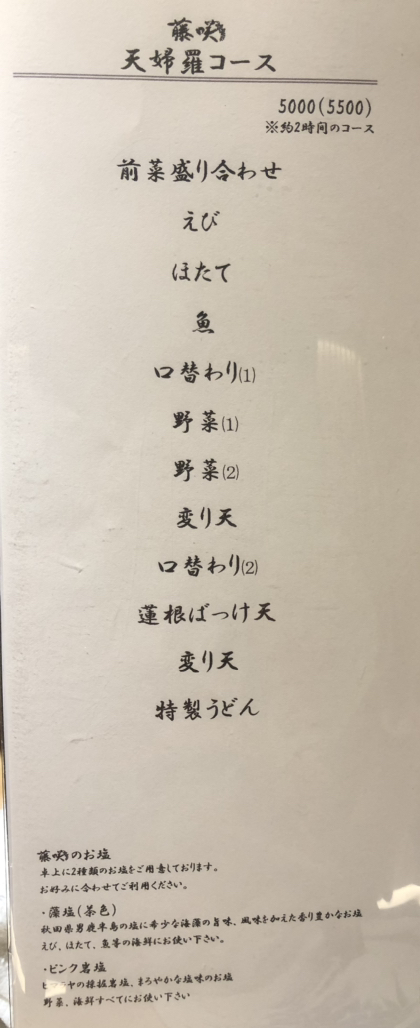 藤咲き
天婦羅コース
5000(5500)
※約2時間のコース
前菜盛り合わせ
えび
ほたて
魚
口替わり⑴
野菜⑴
野菜⑵
変り天
口替わり⑵
蓮根ばっけ天
変り天
特製うどん
藤咲きのお塩
卓上に2種類のお塩をご用意しております。
お好みに合わせてご利用ください。
・藻塩(茶色)
秋田県男鹿半島の塩に希少な海藻の旨味、風味を加えた香り豊かなお塩
えび、ほたて、魚等の海鮮にお使い下さい。
・ピンク岩塩
ヒマラヤの採掘岩塩、まろやかな塩味のお塩
野菜、海鮮すべてにお使い下さい